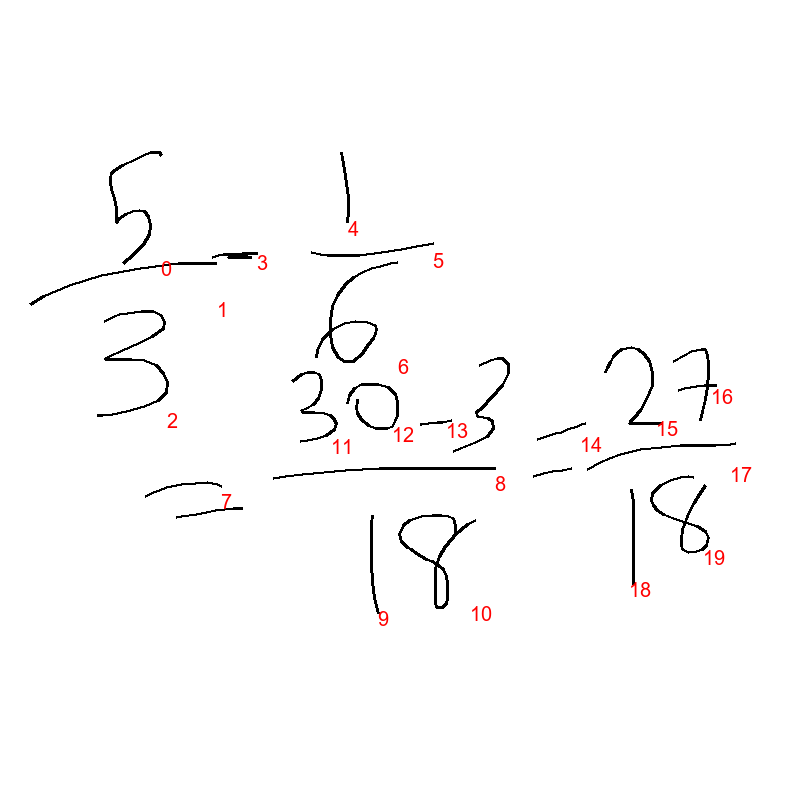 5/3 - 1/6
= (30 - 3)/18 = 27/18
0 1 2 3 4 5 6 7 8 9 10 11 12 13 14 15 16 17 18 19